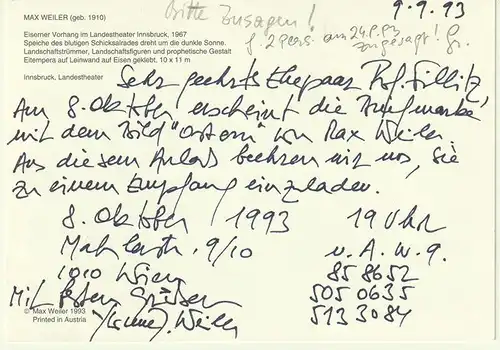 MAX WEILER (geb. 1910)
Bitte Zusagen!
9.9.93
Eiserner Vorhang im Landestheater Innsbruck, 1967
Speiche des blutigen Schicksalrades dreht um die dunkle Sonne.
Landschaftstrümmer, Landschaften und prophetische Gestalt
Eitempera auf Leinwand auf Eisen geklebt. 10 x 11 m
f. 2 Pers. am 24.9.93
zugesagt! Gr.
Innsbruck, Landestheater
Sehr geehrtes Ehepaar Prof. Fillitz,
Am 8. Oktober erscheint die Briefmarke
mit dem Bild "Ostern" von Max Weiler
Aus diesem Anlaß beehren wir uns, Sie
zu einem Empfang einzuladen.
8. Oktober 1993 19 Uhr
9/10 u. A. w. g.
1010 Wien 85 86 52
Mit besten Grüßen 505 0635
Weiler 513 3084
© Max Weiler 1993
Printed in Austria